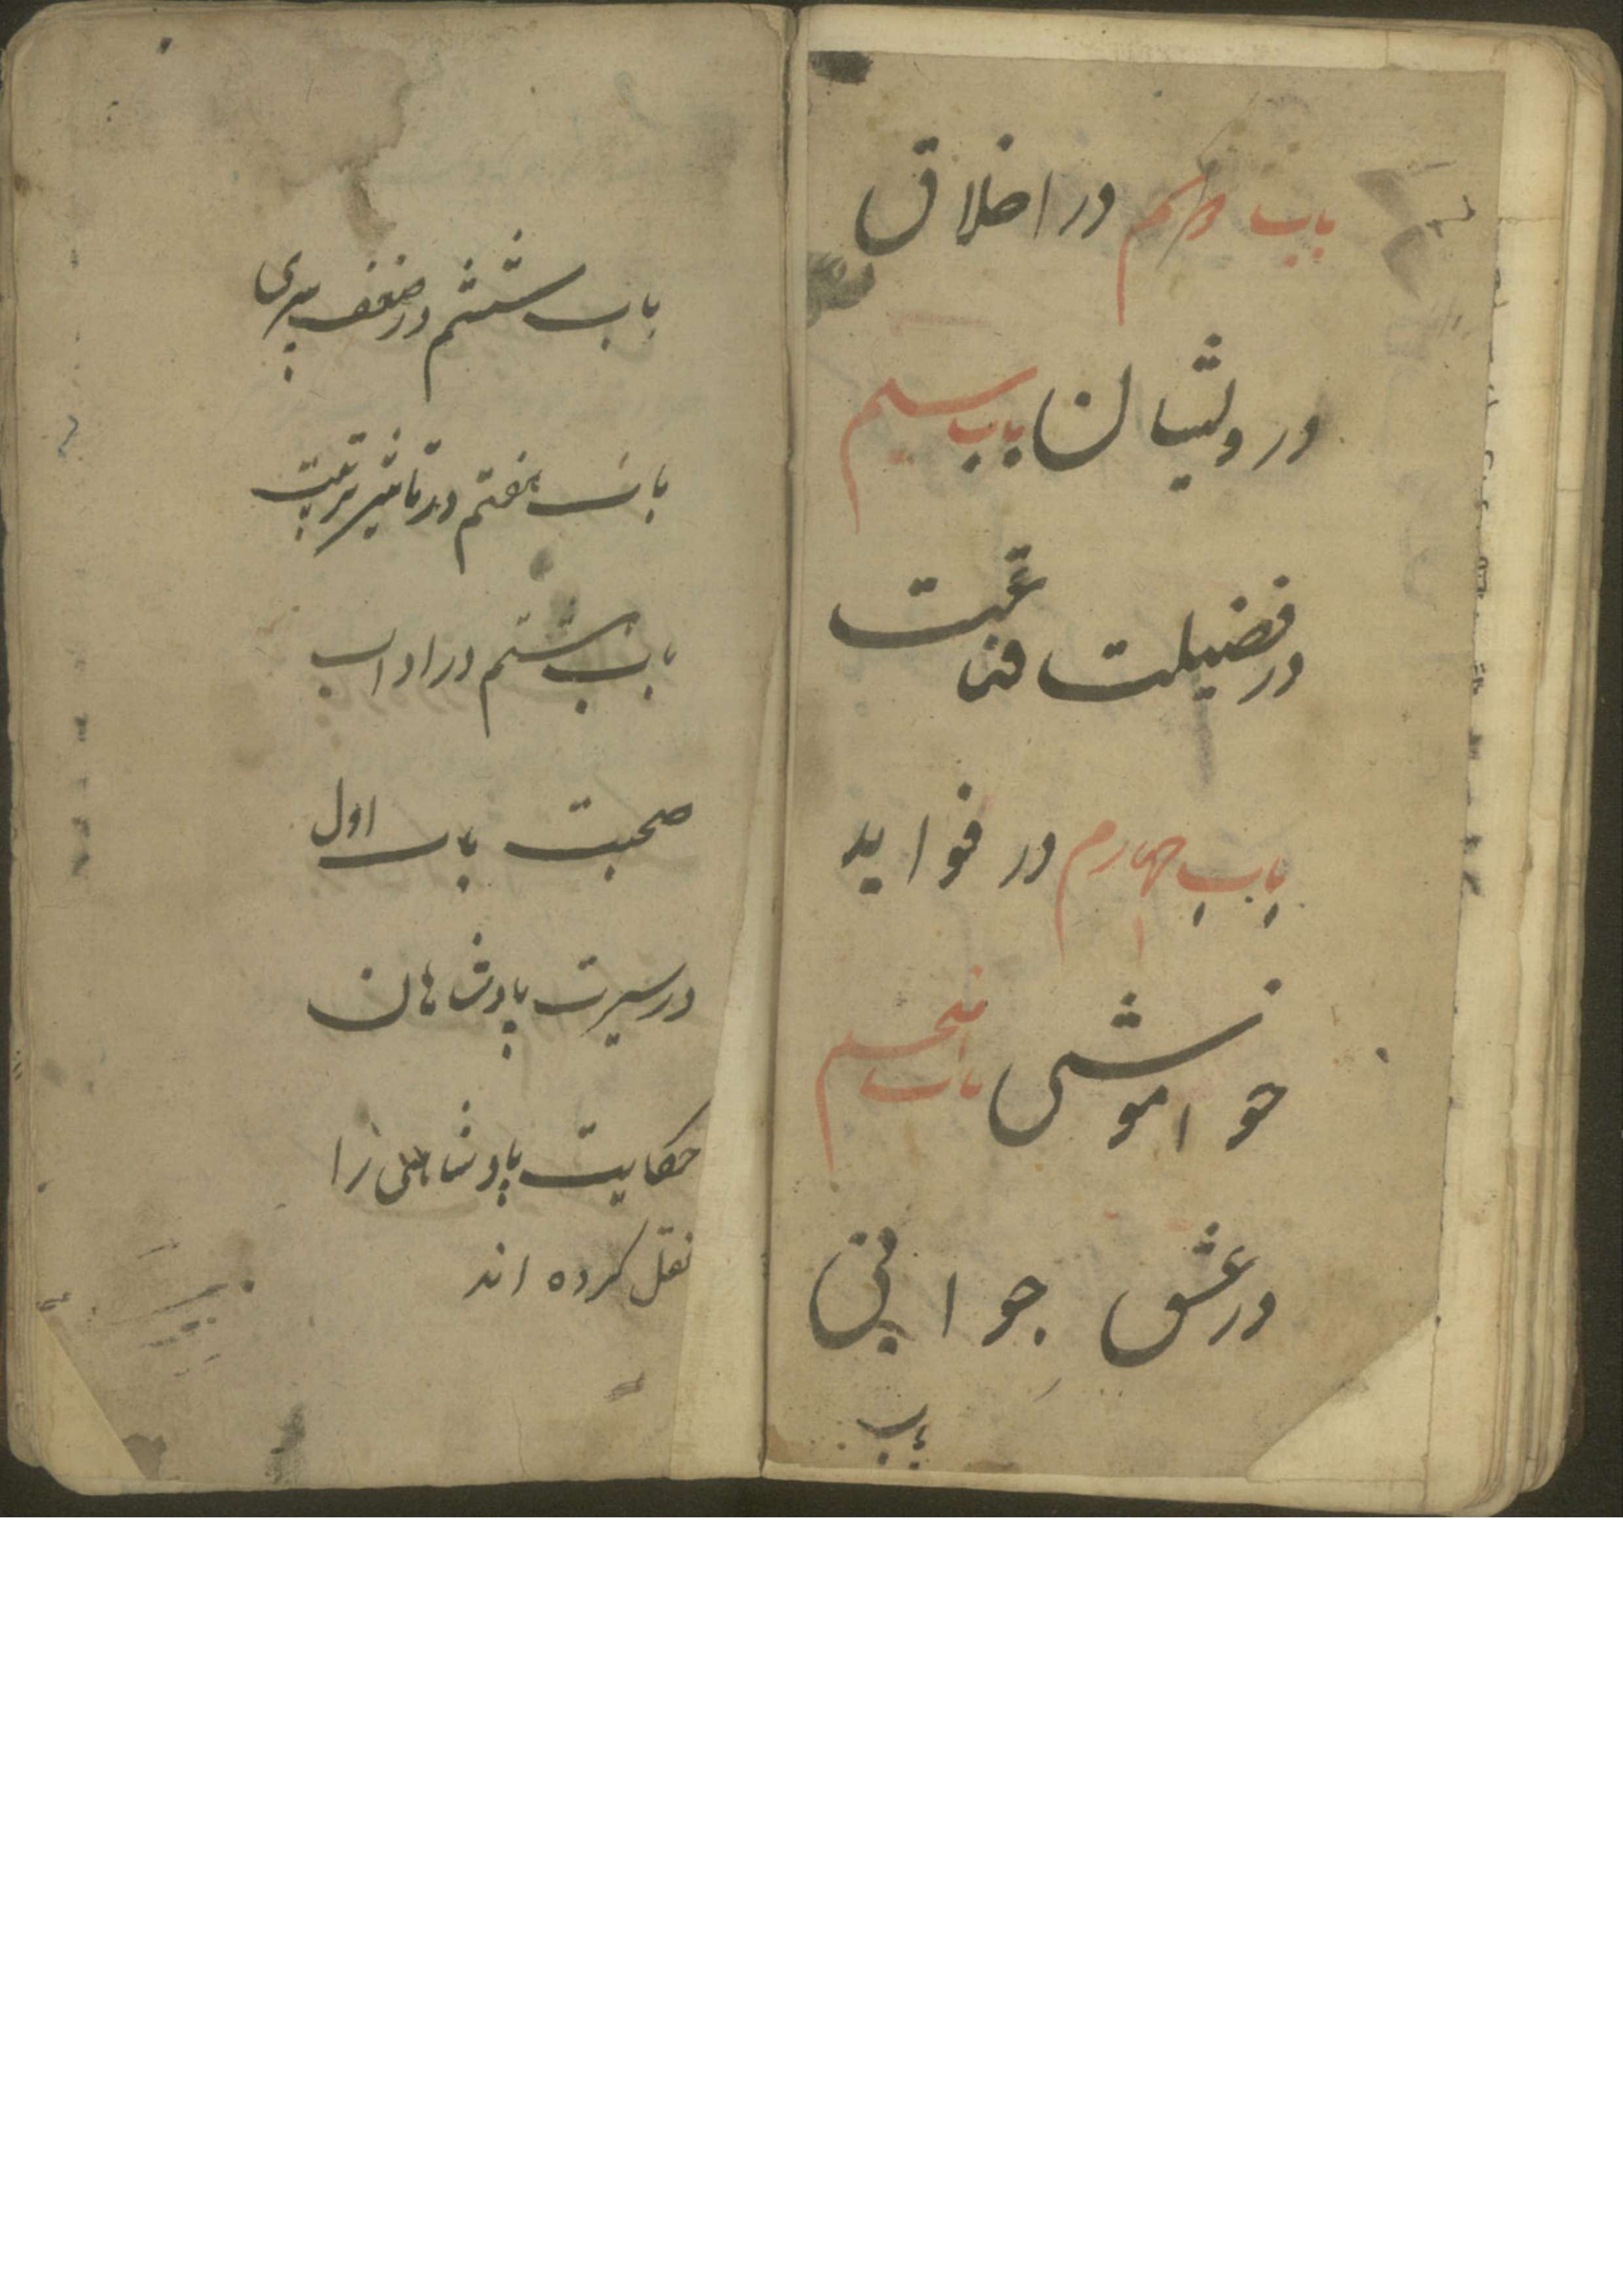 باب دوم در اخلاق
درویشان باب سیم
در فضیلت قناعت
باب چهارم در فواید
خواموشی باب پنجم
در عشق جوانی
باب
باب ششم در ضعف پیری
باب هفتم در تاثیر تربیت
باب هشتم در اداب
صحبت باب اول
در سیرت پادشاهان
حکایت پادشاهی را
نقل کرده اند